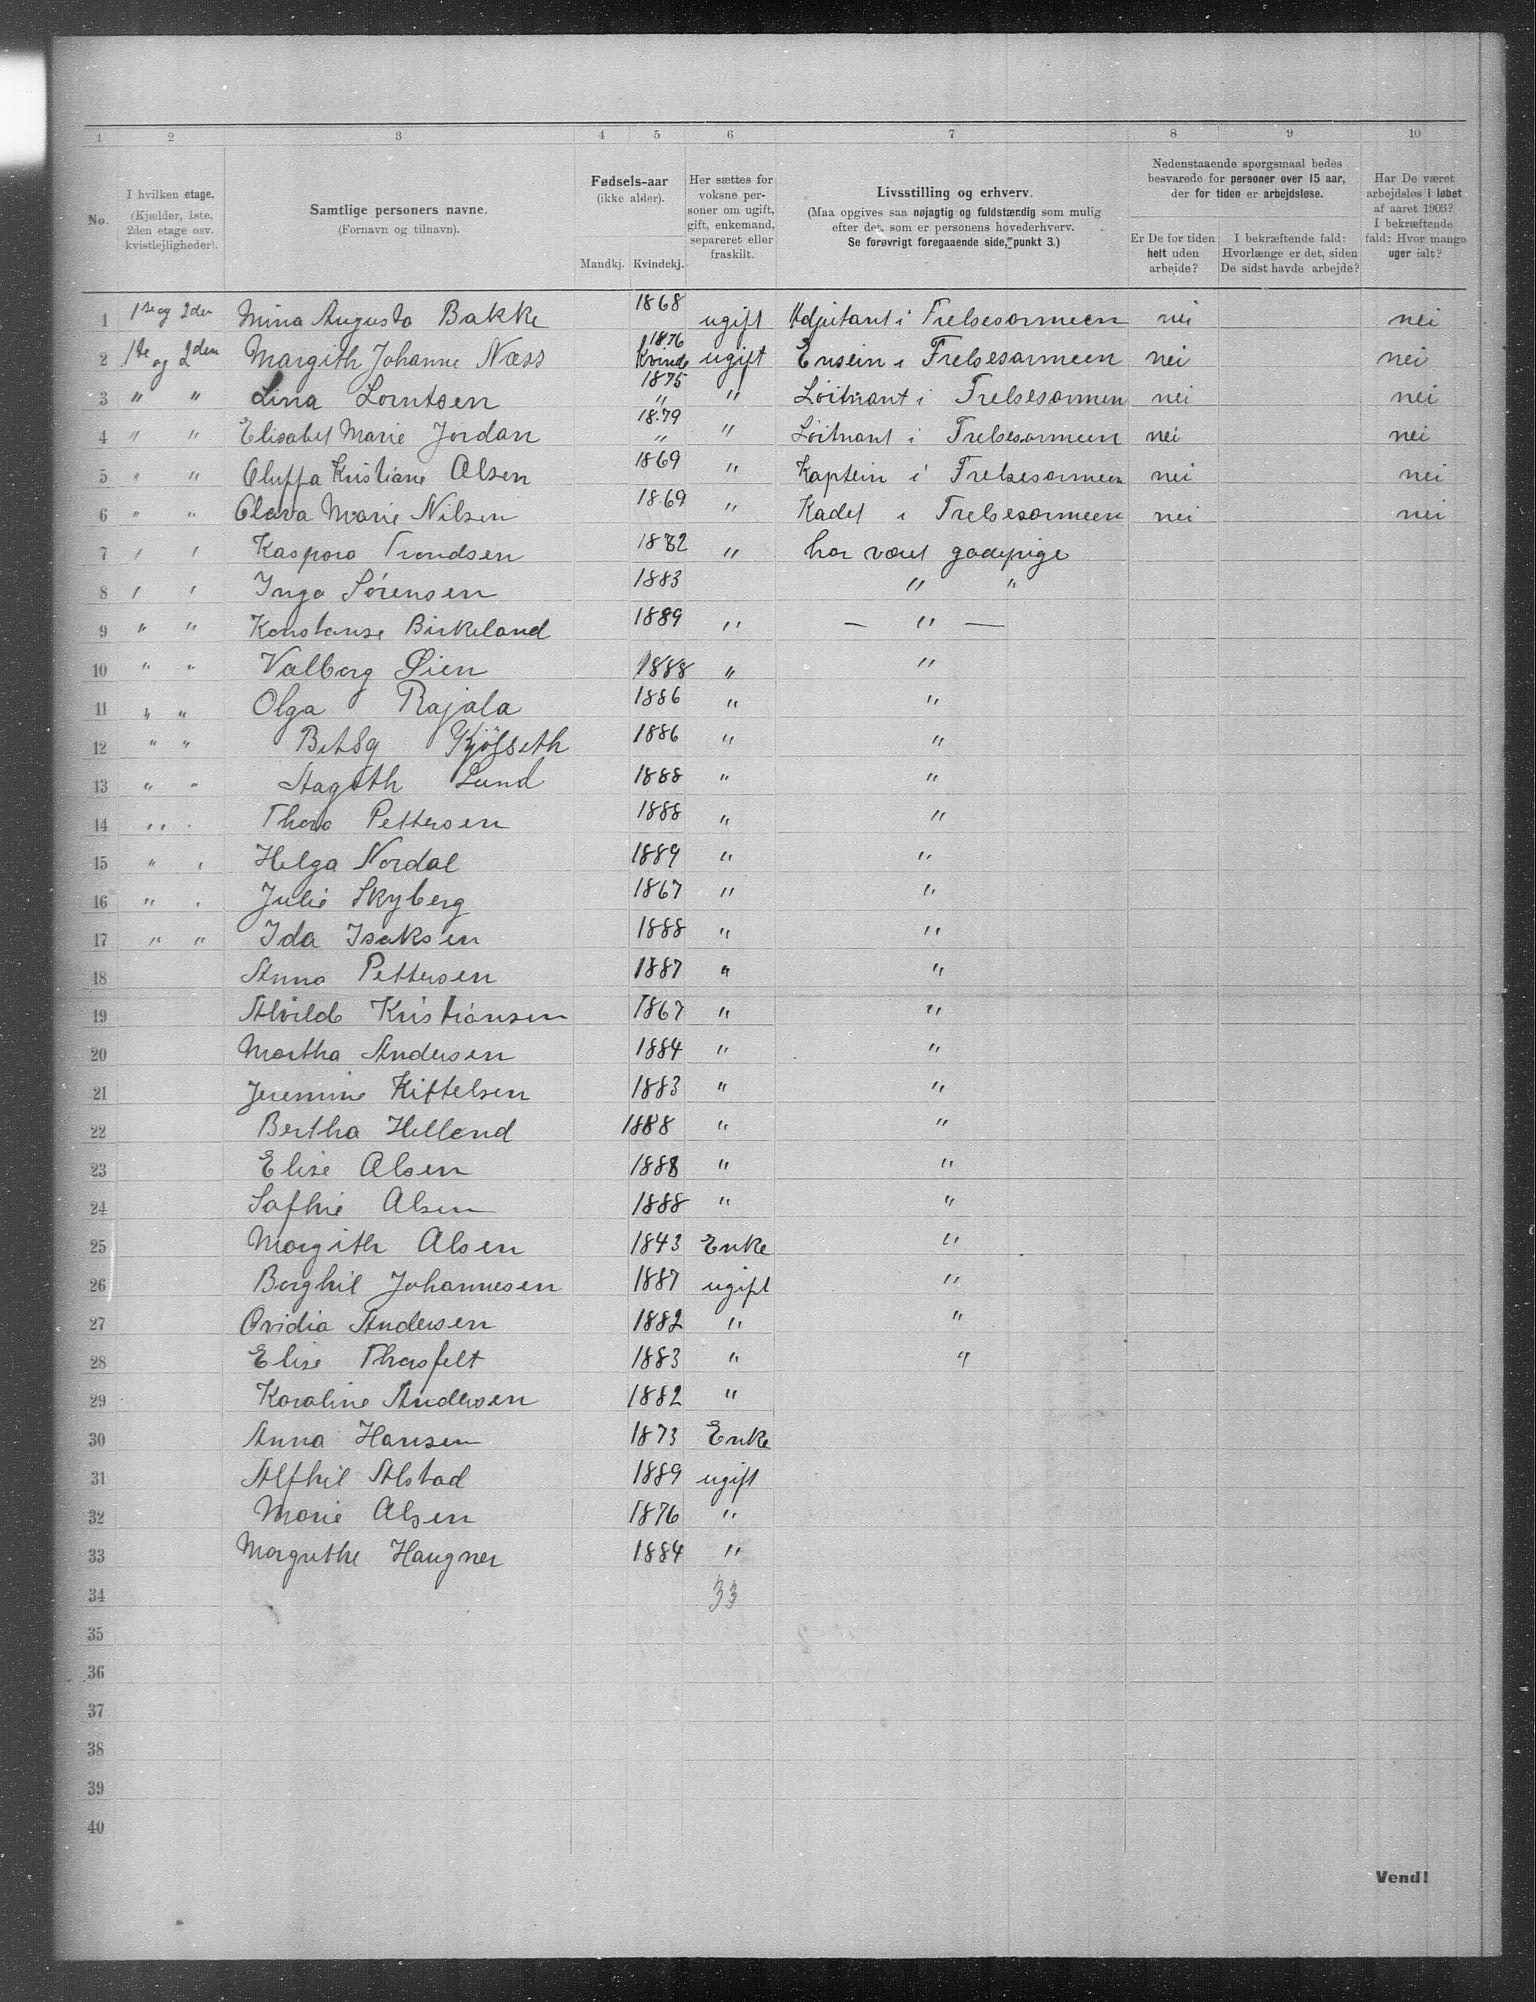 1 2 3 4 5 6 7 8 9 10
No.
I hvilken etage.
(Kjælder, 1ste,
2den etage osv.
kvistlejligheder).
Samtlige personers navne.
(Fornavn og tilnavn).
Fødsels-aar
(ikke alder).
Mandkj. Kvindekj.
Her sættes for
voksne per-
soner om ugift,
gift, enkemand,
separeret eller
fraskilt.
Livsstilling og erhverv.
(Maa opgives saa nøjagtig og fuldstærdig som mulig
efter det, som er personens hovederhverv.
Se forøvrigt foregaaende side, punkt 3.)
Nedenstaaende spørgsmaal bedes
besvarede for personer over 15 aar,
der for tiden er arbejdsløse.
Er De for tiden
helt uden
arbejde?
I bekræftende fald:
Hvorlænge er det, siden
De sidst havde arbejde?
Har De været
arbejdsløs i løbet
af aaret 1903?
I bekræftende
fald: Hvor mange
uger ialt?
1 1ste og 2den Mina Augusta Bakke 1868 ugift Adjutant i Frelsesarmeen nei nei
2 1ste og 2den Margith Johanne Næss 1876 Kvinde ugift Ensein i Frelsesarmeen nei nei
3 " " Lina Lorntsen 1875 " " Løitnant i Frelsesarmen nei nei
4 " " Elisabet Marie Jordan 1879 " " Løitnant i Frelsesarmeen nei nei
5 " " Oluffa Kristiane Olsen 1869 " Kaptein i Frelsesarmeen nei nei
6 " " Clara Marie Nilsen 1869 " Kadet i Frelsesarmeen nei nei
7 " " Kaspara Trondsen 1882 " har været gadepige
8 " " Inga Sørensen 1883 " "
9 " " Konstanse Birkeland 1889 " — " —
10 " " Valborg Øien 1888 " "
11 " " Olga Rajala 1886 " "
12 " " Betsy Kjølseth 1886 " "
13 " " Aagoth Lund 1888 " "
14 " " Thora Pettersen 1888 " "
15 " " Helga Nordal 1889 " "
16 " " Julie Skyberg 1867 " "
17 " " Ida Isaksen 1888 " "
18 Anna Pettersen 1887 " "
19 Alvilde Kristiansen 1867 " "
20 Martha Andersen 1884 " "
21 Jeremine Kittelsen 1883 " "
22 Bertha Helland 1888 " "
23 Elise Olsen 1888 " "
24 Sofhie Olsen 1888 " "
25 Margith Olsen 1843 Enke "
26 Borghil Johannesen 1887 ugift "
27 Ovidia Andersen 1882 " "
28 Elise Thorsfelt 1883 " "
29 Karoline Andersen 1882 "
30 Anna Hansen 1873 Enke
31 Alfhil Alstad 1889 ugift
32 Marie Olsen 1876 "
33 Margrethe Haugner 1884 "
34 33
35
36
37
38
39
40
Vend!